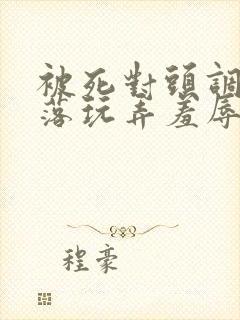 被死對頭調
落玩弄羞辱
程豪